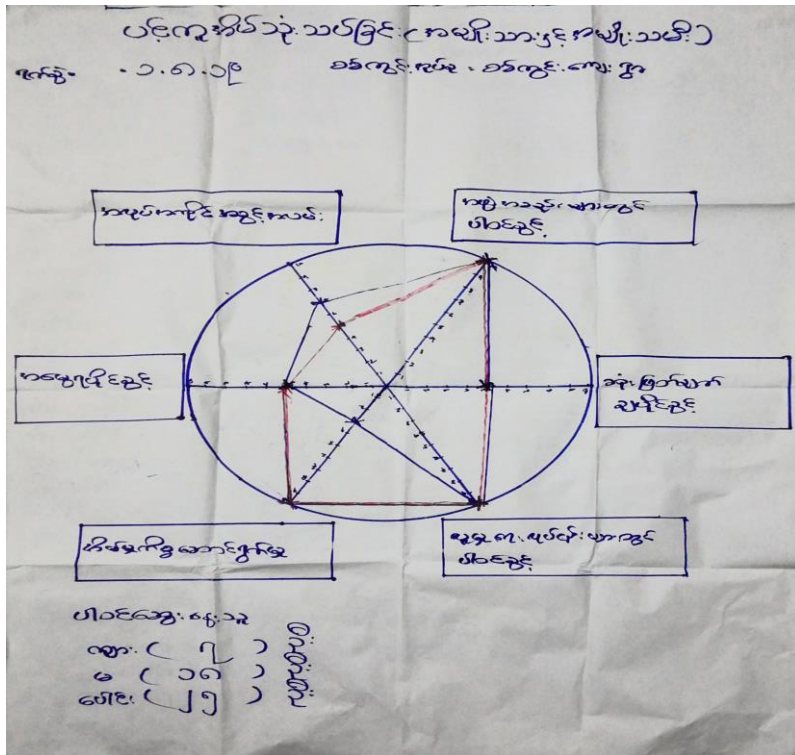 ပင့်ကူအိမ်သုံးသပ်ခြင်း (အမျိုးသားနှင့်အမျိုးသမီး)
ရက်စွဲ- ၁.၆.၁၉
အလုပ်အကိုင်အခွင့်အလမ်း
အဖွဲ့အစည်းများတွင်
ပါဝင်ခွင့်
အမွေရပိုင်ခွင့်
ဆုံးဖြတ်ချက်
ချပိုင်ခွင့်
အိမ်မှုကိစ္စဆောင်ရွက်မှု
လူမှုရေးလုပ်ငန်းများတွင်
ပါဝင်ခွင့်
ပါဝင်ဆွေးနွေးသူ
ကျား ( ၇ ) ဦး
မ ( ၁၈ ) ဦး
ပေါင်း ( ၂၅ ) ဦး